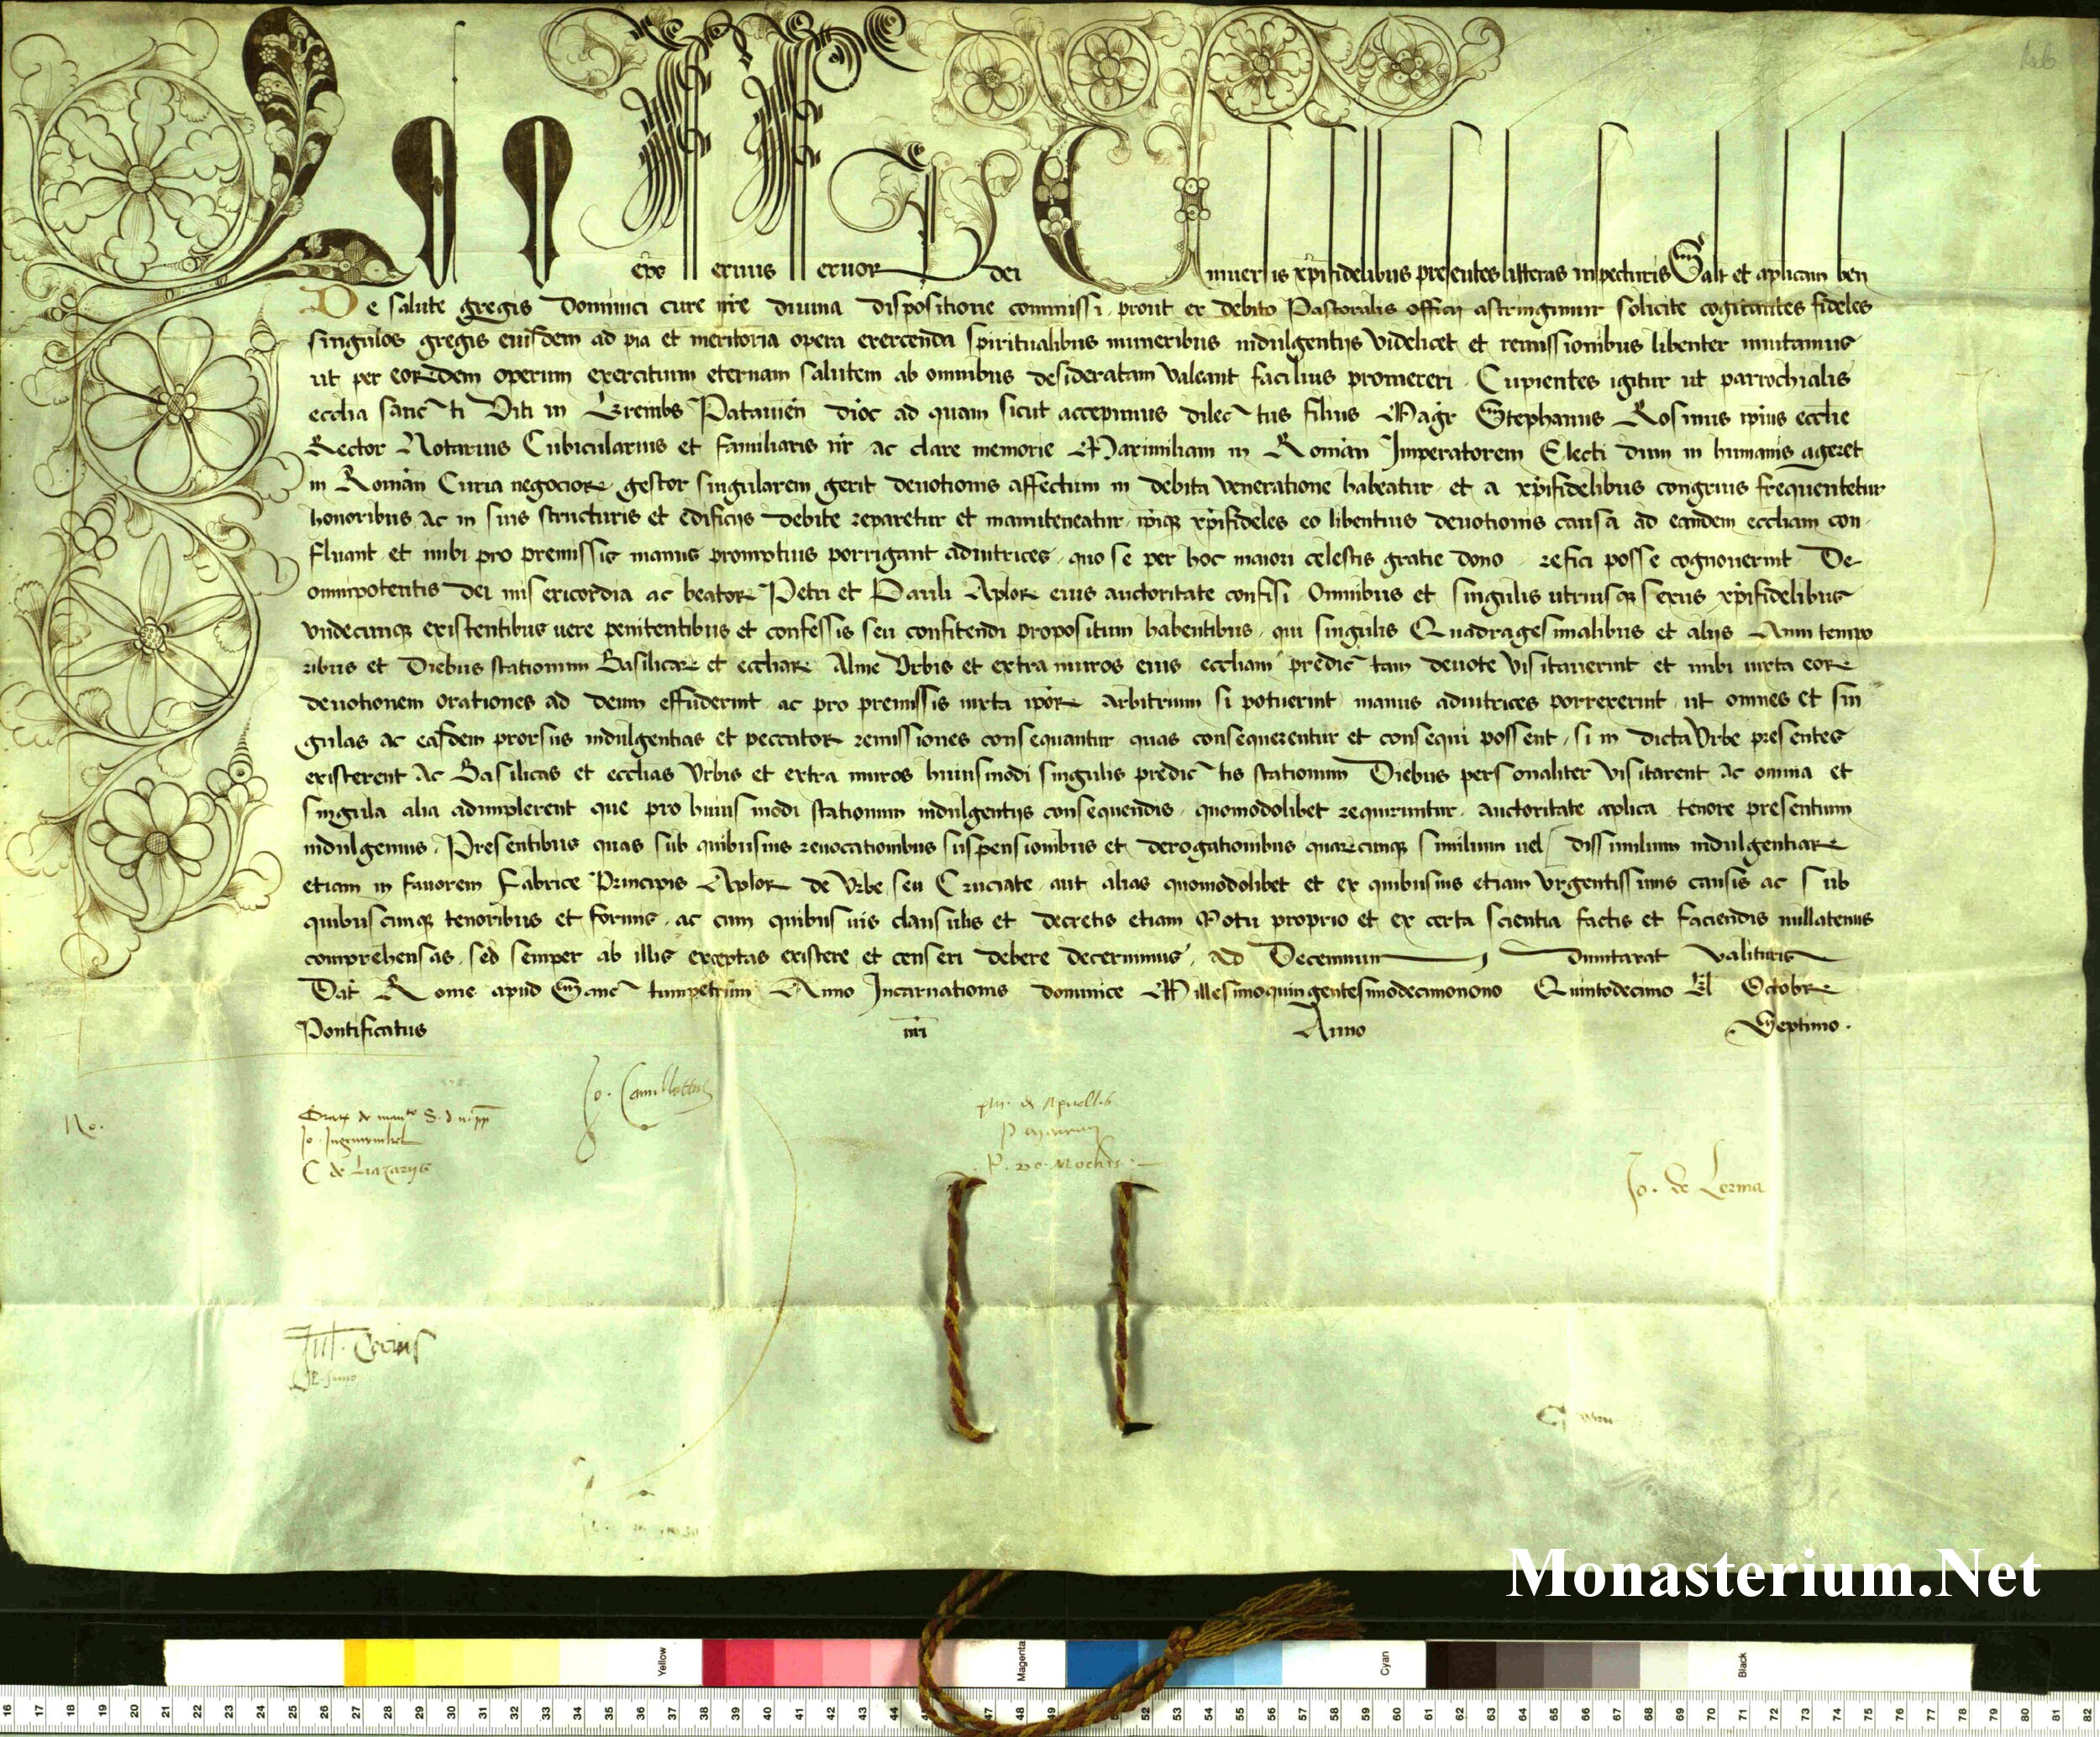 Leo eps servus servor dei Universis xpifidelibus presentes litteras inspecturis Salt et aplicam ben
De salute gregis dominici cure nre divina dispositione commissi prout ex debito Pastoralis officij astringimur solicite cogitantes fideles
singulos gregis eiusdem ad pia et meritoria opera exercenda spiritualibus muneribus indulgentijs videlicet et remissionibus libenter invitamus
ut per eorūdem operum exercitium eternam salutem ab omnibus desideratam valeant facilius promereri. Cupientes igitur ut parrochialis
ecclia sancti Viti in Krembs Patavien dioc ad quam sicut accepimus dilectus filius Magr Stephanus Rosinus ipius ecclie
Rector Notarius Cubicularius et familiaris nr ac clare memorie Maximiliani in Roman Imperatorem Electi dum in humanis ageret
in Roman Curia negocior gestor singularem gerit devotionis affectum in debita veneratione habeatur et a xpifidelibus congruis frequentetur
honoribus ac in suis structuris et edificijs debite reparetur et manuteneatur ipiq xpifideles eo libentius devotionis causa ad eandem eccliam con
fluant et inibi pro premissis manus promptius porrigant adiutrices quo se per hoc maiori celestis gratie dono refici posse cognoverint De
omnipotentis dei misericordia ac beator Petri et Pauli Aplor eius auctoritate confisi Omnibus et singulis utriusq sexus xpifidelibus
undecunq existentibus vere penitentibus et confessis seu confitendi propositum habentibus qui singulis Quadragesimalibus et alijs Anni tempo
ribus et diebus stationum Basilicar et ecclar Alme Urbis et extra muros eius eccliam predictam devote visitaverint et inibi iuxta eor
devotionem orationes ad deum effuderint ac pro premissis iuxta ipor arbitrium si potuerint manus adiutrices porrexerint ut omnes et sin
gulas ac easdem prorsus indulgentias et peccator remissiones consequantur quas consequerentur et consequi possent, si in dicta Urbe presentes
existerent Ac Basilicas et ecclias Urbis et extra muros huiusmodi singulis predictis stationum diebus personaliter visitarent ac omnia et
singula alia adimplerent que pro huiusmodi stationum indulgentijs consequendis quomodolibet requiruntur. auctoritate aplica tenore presentium
indulgemus. Presentibus quas sub quibusvis revocationibus suspensionibus et derogationibus quarucunq similium vel dissimilium indulgentiar
etiam in favorem Fabrice Principis Aplor de Urbe, seu Cruciate aut alias quomodolibet et ex quibusvis etiam urgentissimis causis ac sub
quibuscunq tenoribus et formis. ac cum quibusvis clausulis et decretis etiam Motu proprio et ex certa scientia factis et faciendis nullatenus
comprehensas sed semper ab illis exceptas existere et censeri debere decernimus, ad Decennium duntaxat valituris
Dat Rome apud Sanctumpetrum Anno Incarnationis dominice Millesimoquingentesimodecimonono Quintodecimo Kl Octobr
Pontificatus nri Anno Septimo.
Jo. Camillettus
No.
Grat de manto S. d. n. pp
Jo. Ingenwinkel
C de Lazarijs
Jo. de Lerma
Monasterium.Net
Yellow Magenta Cyan Black
16 17 18 19 20 21 22 23 24 25 26 27 28 29 30 31 32 33 34 35 36 37 38 39 40 41 42 43 44 47 48 49 52 53 54 55 56 57 58 59 60 61 62 63 64 65 66 67 68 69 70 71 72 73 74 75 76 77 78 79 80 81 82